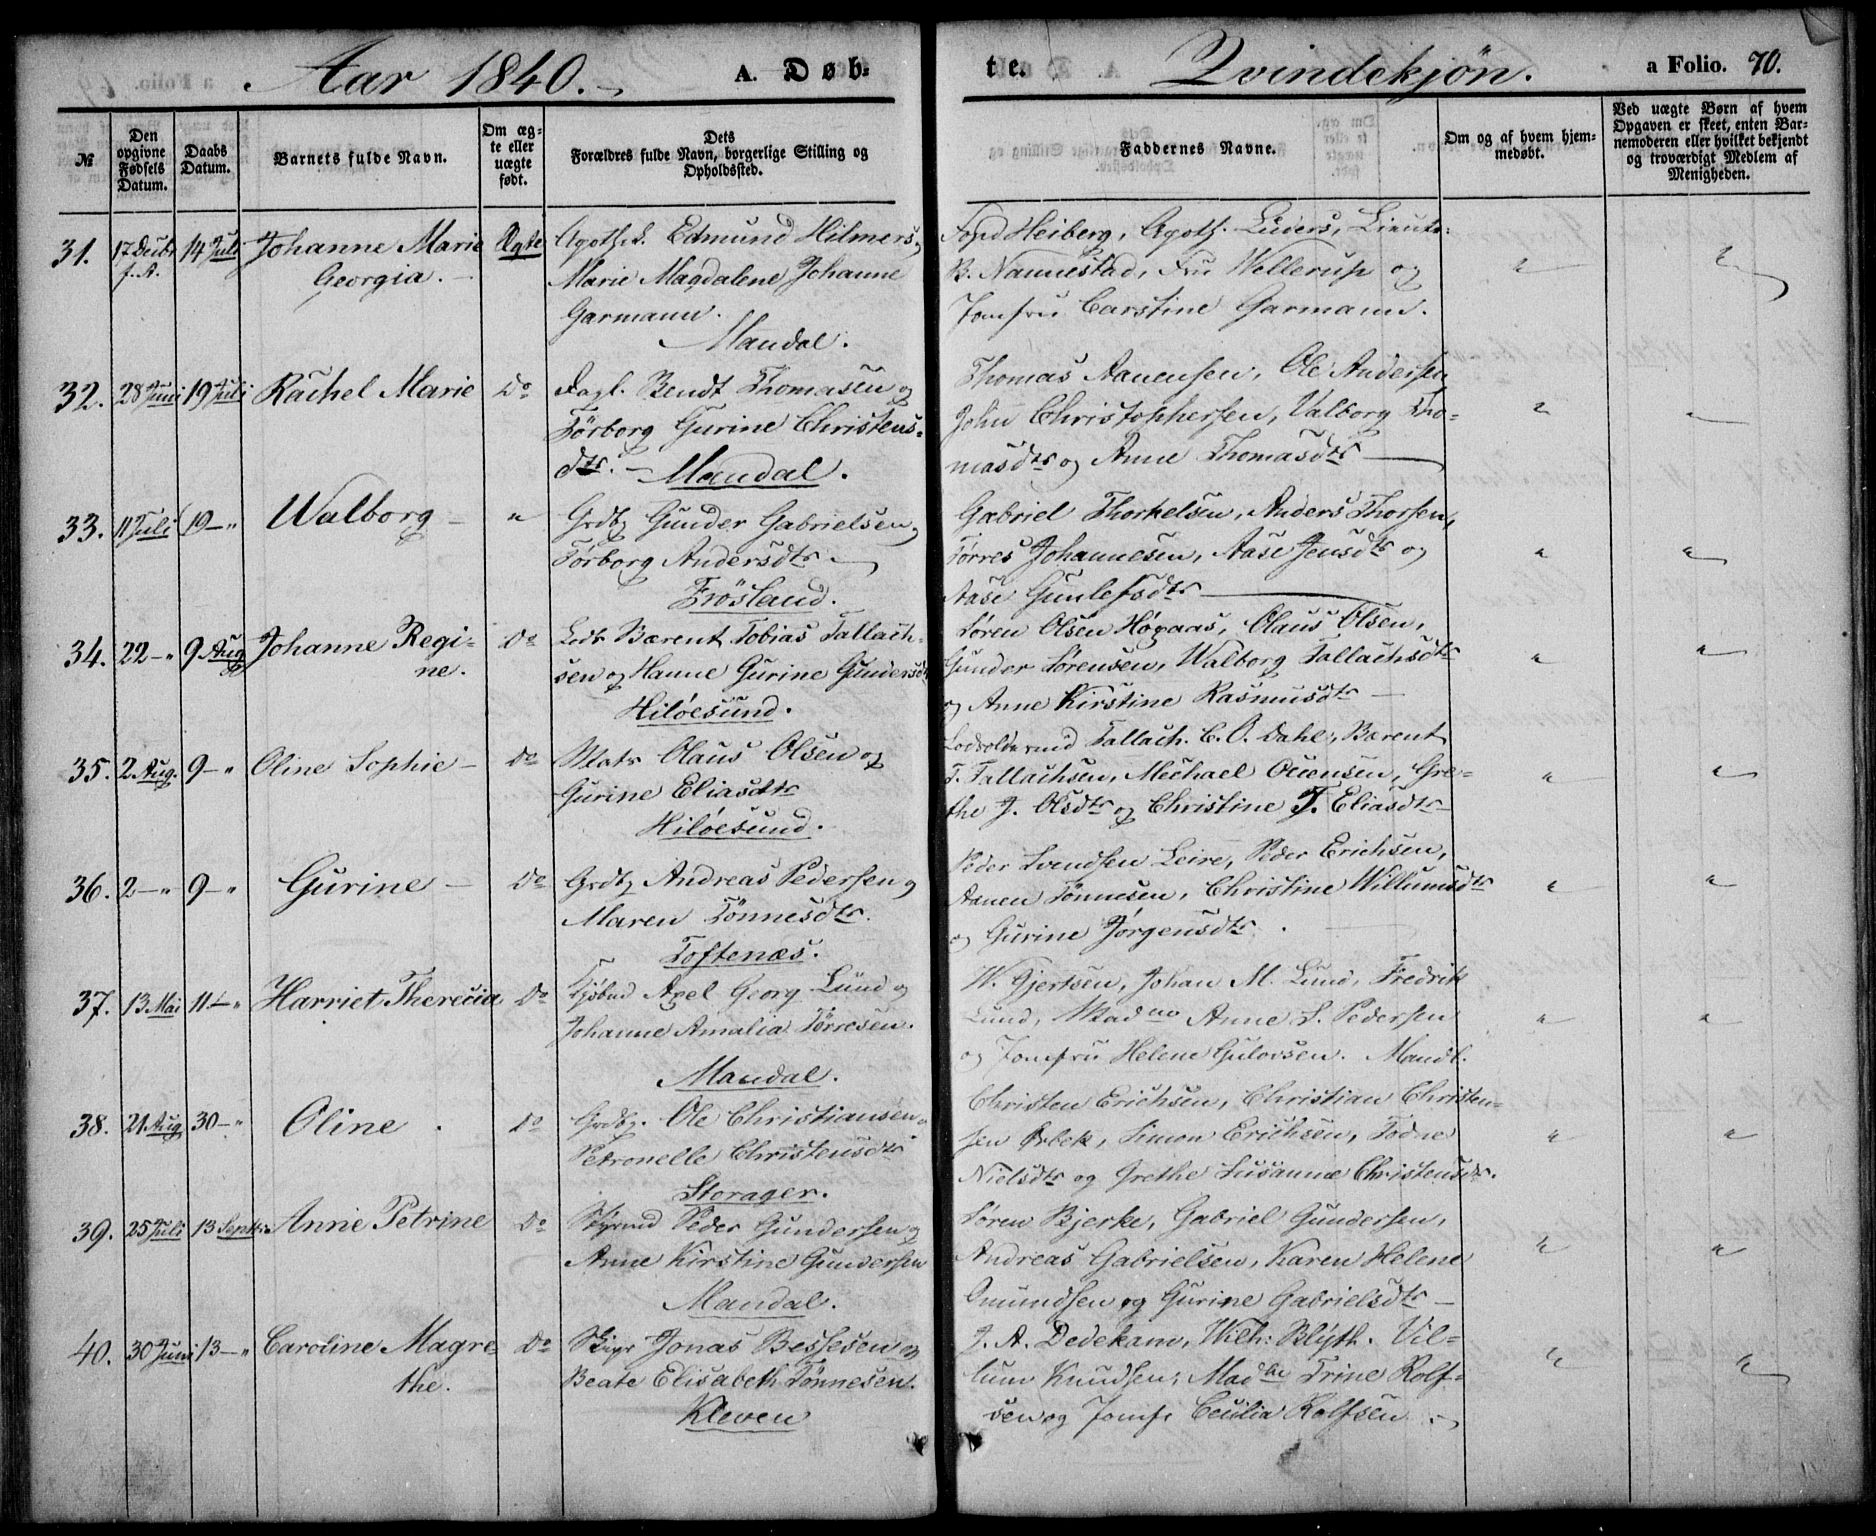 Aar 1840. A. Døb-
te. Qvindekjön. a Folio. 70.
№
Den opgivne Fødsels Datum.
Daabs Datum.
Barnets fulde Navn.
Om ægte eller uægte født.
Dets Forældres fulde Navn, borgerlige Stilling og Opholdssted.
Faddernes Navne.
Om og af hvem hjemmedøbt.
Ved uægte Børn af hvem Opgaven er skeet, enten Barnemoderen eller hvilket bekjendt og troværdigt Medlem af Menigheden.
31. 17 Decbr f. A. 14 Juli Johanne Marie Georgia. Ægte
Apothek. Edmund Hilmers og
Marie Magdalene Johanne
Garmann.
Mandal.
Heiberg, Apoth. Lüders, Lieutn:
B. Nannestad, Fru Wellerup og
Jomfru Carstine Garmann.
32. 28 Juni 19 Juli Rachel Marie Do
Dagl. Bendt Thomasen og
Törborg Gurine Christens-
dtr. Mandal.
Thomas Aanensen, Ole Andersen
John Christophersen, Valborg Tho-
masdtr og Anne Thomasdtr
33. 11 Juli 19 " Walborg "
Grdbr Gunder Gabrielsen og
Törborg Andersdtr
Frösland.
Gabriel Thorkelsen, Anders Thorsen,
Törres Johannesen, Aase Jensdtr og
Aase Gunlefsdtr
34. 22 " 9 Aug Johanne Regi-
ne. Do
Lods Bærent Tobias Tallach-
sen og Hanne Gurine Gundersdtr
Hilöesund.
Sören Olsen Högaas, Olaus Olsen,
Gunder Sörensen, Walborg Tallachsdtr
og Anne Kirstine Rasmusdtr
35. 2 Aug. 9 " Oline Sophie Do
Matr Olaus Olsen og
Gurine Eliasdtr
Hilöesund.
Lodsoldermd Tallach. C. O. Dahl, Bærent
T. Tallachsen, Mechael Ouensen, Gre-
the J. Olsdtr og Christine T. Eliasdtr
36. 2 " 9 " Gurine Do
Grdbr Andreas Pedersen og
Maren Tönnesdtr.
Toftenæs.
Peder Svendsen Leire, Peder Erichsen,
Aanen Tönnesen, Christine Willumsdtr
og Gurine Jörgensdtr.
37. 13 Mai 11 " Harriet Therecia Do
Axel Georg Lund og
Johanne Amalia Törresen.
Mandal.
W. Gjertsen, Johan M. Lund, Fredrik
Lund, Madme Anne S. Pedersen
og Jomfru Helene Gulovsen. Mandl.
38. 21 Aug 30 " Oline. Do
Grdbr. Ole Christiansen og
Petronelle Christensdtr
Storager.
Christen Erichsen, Christian Christen-
sen Orbek, Simon Erichsen, Todne
Nielsdtr og Grethe Susanne Christensdtr.
39. 25 Juli 13 Septbr Anne Petrine Do
Peder Gundersen og
Anne Kirstine Gundersen
Mandal.
Sören Bjerke, Gabriel Gundersen,
Andreas Gabrielsen, Karen Helene
Omundsen og Gurine Gabrielsdtr
40. 30 Juni 13 " Caroline Magre-
the. Do
Skipr Jonas Bessesen og
Beate Elisabeth Tönnesen.
Kleven
J. A. Dedekam, Wilh: Blyth. Vil-
lum Knudsen, Madme Trine Rolf-
sen og Jomfr Cecilia Rolfsen